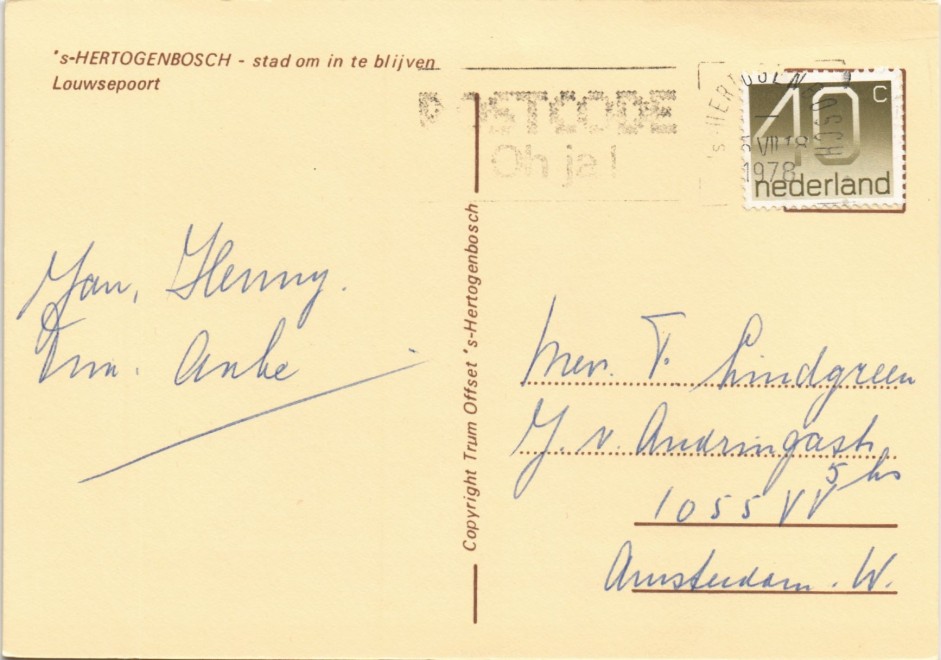 's-HERTOGENBOSCH - stad om in te blijven
Louwsepoort
POSTCODE
Oh ja!
's-HERTOGENBOSCH
1978
40 c
nederland
Jan, Henny.
Anke
Copyright Trum Offset 's-Hertogenbosch
Mev. T. Lindgreen
J. v. Andringastr.
5 hs
1055 VV
Amsterdam. W.